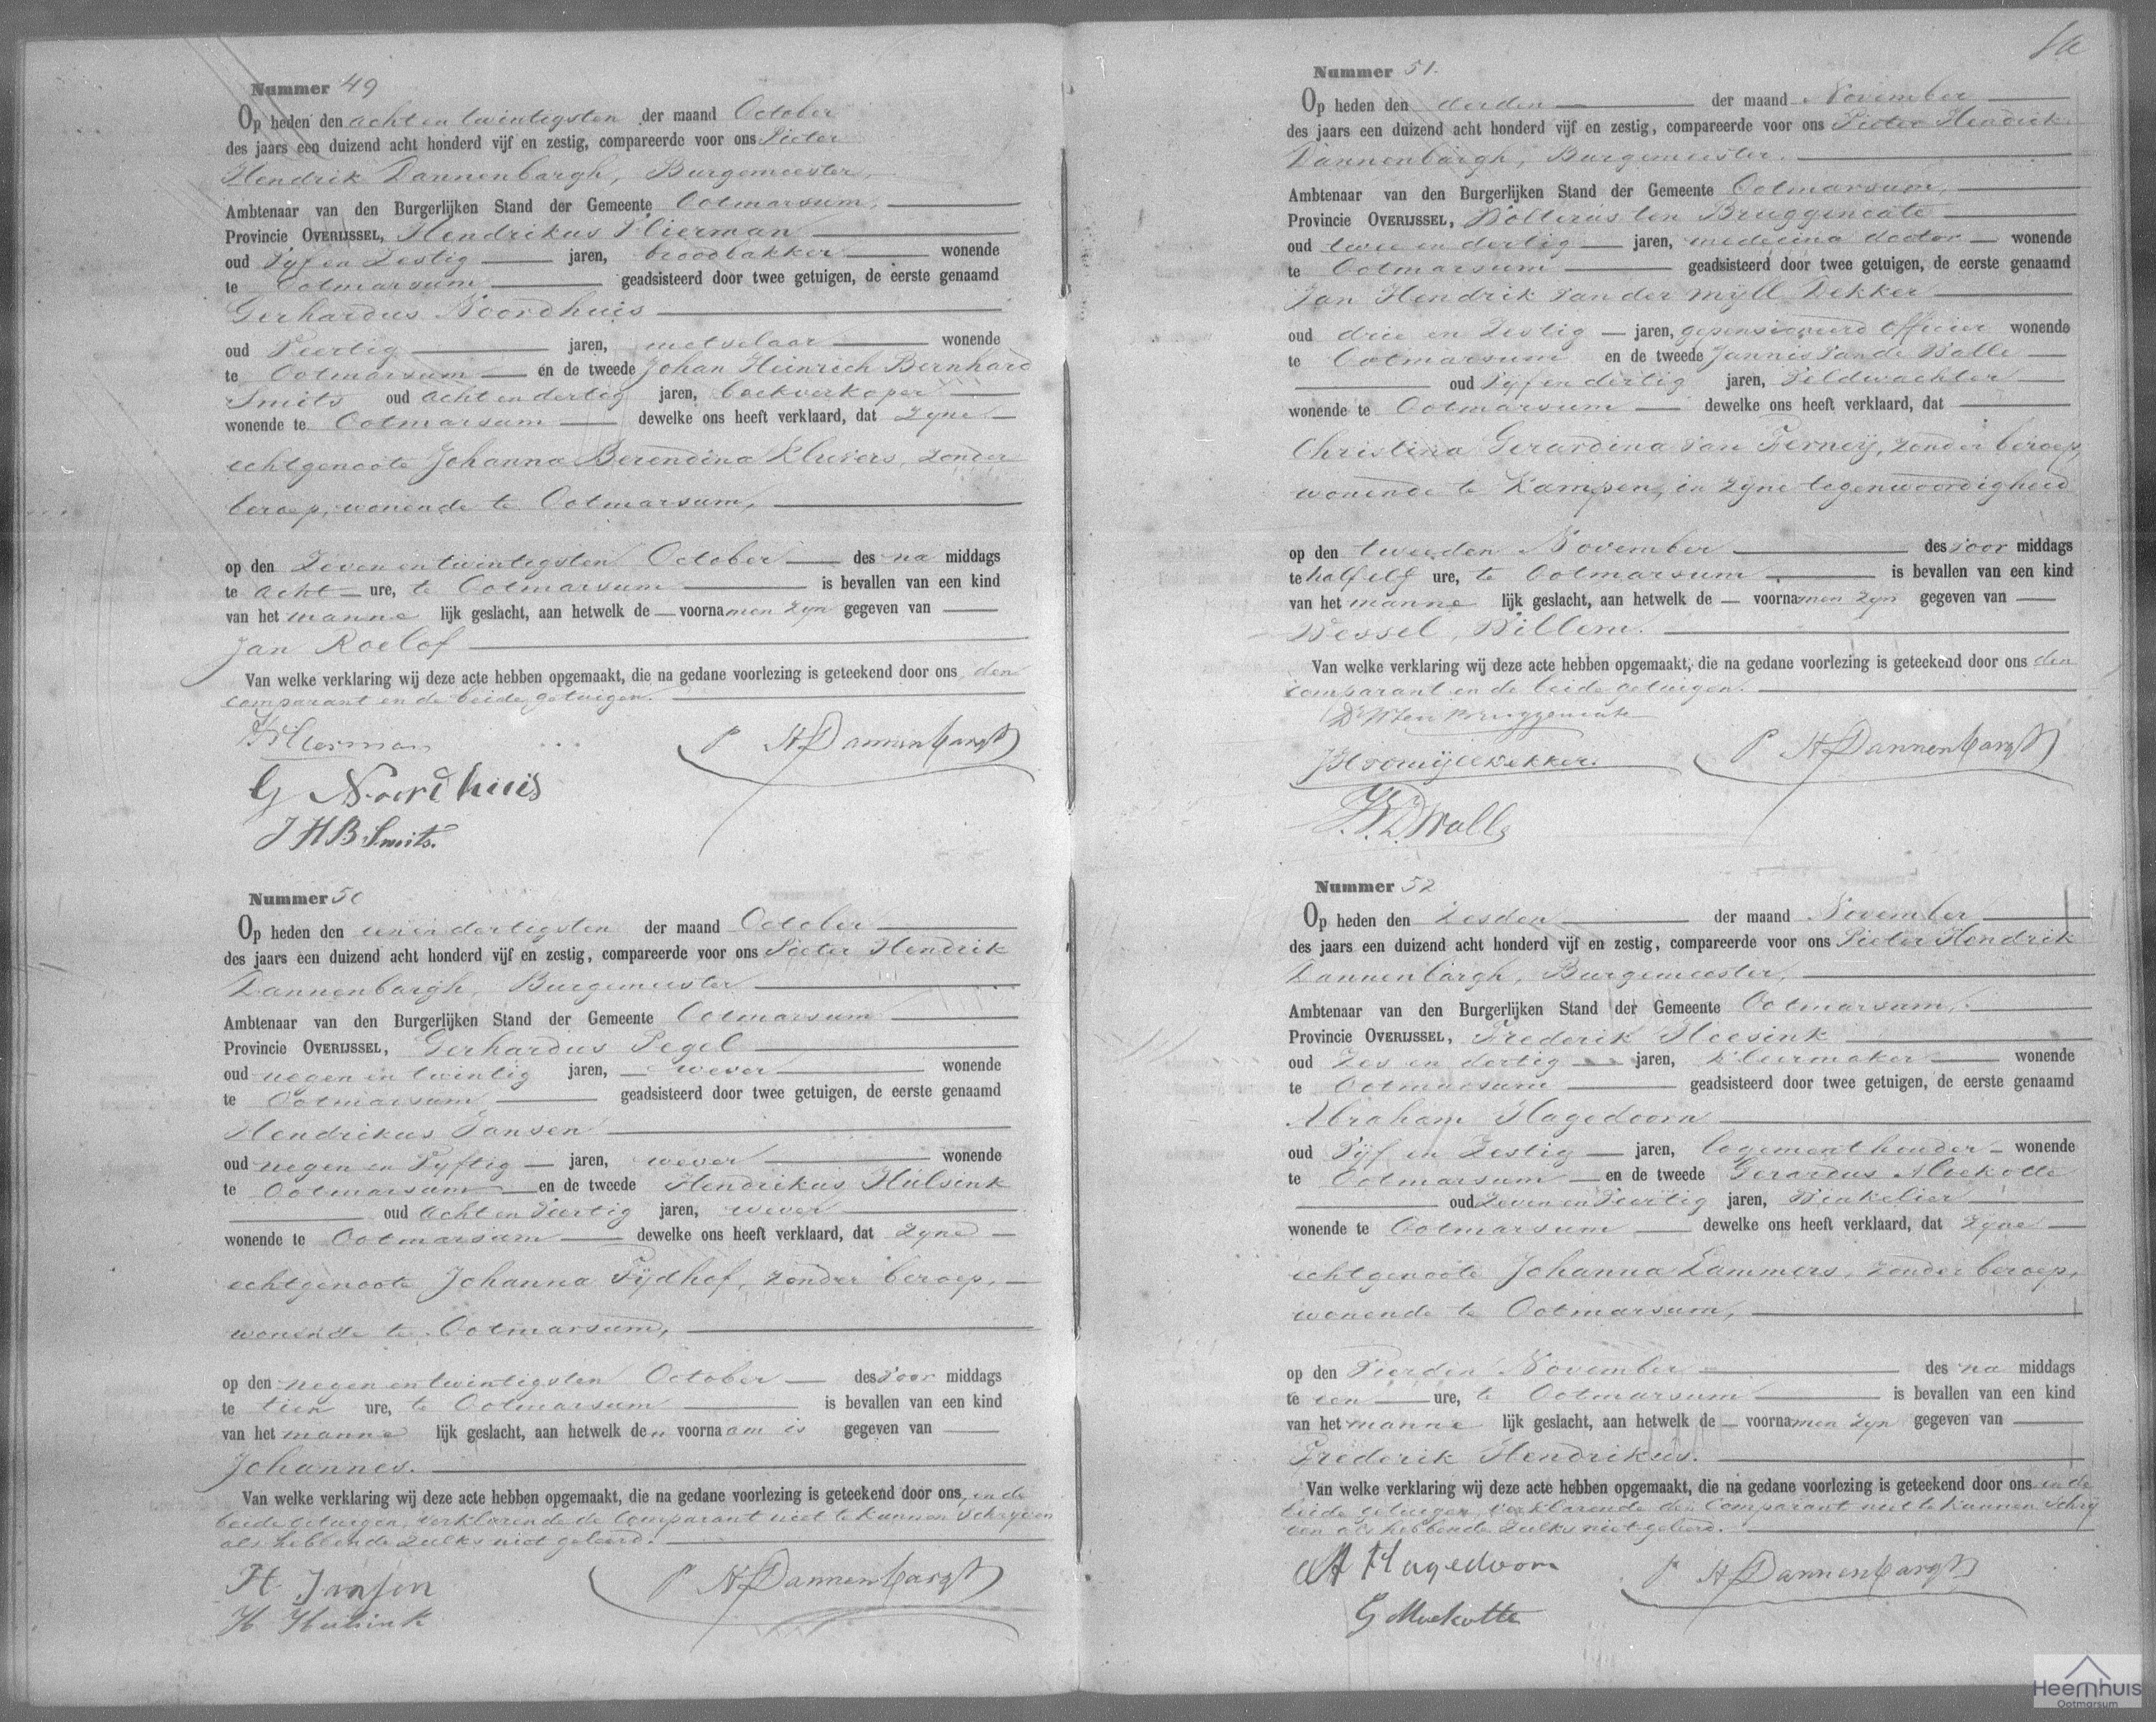 Nummer 49
Op heden den acht en twintigsten der maand October
des jaars een duizend acht honderd vijf en zestig, compareerde voor ons Pieter
Hendrik Dannenbargh, Burgemeester,
Ambtenaar van den Burgerlijken Stand der Gemeente Ootmarsum,
Provincie OVERIJSSEL, Hendrikus Hierman
oud Vijf en Zestig jaren, broodbakker wonende
te Ootmarsum geadsisteerd door twee getuigen, de eerste genaamd
Gerhardus Noordhuis
oud Veertig jaren, metselaar wonende
te Ootmarsum en de tweede Johan Heinrich Bernhard
Smits oud acht en dertig jaren, boekverkoper
wonende te Ootmarsum dewelke ons heeft verklaard, dat zyne
echtgenoote Johanna Berendina Kluvers, zonder
beroep, wonende te Ootmarsum,
op den Zeven en twintigsten October des na middags
te acht ure, te Ootmarsum is bevallen van een kind
van het manne lijk geslacht, aan hetwelk de voornamen zyn gegeven van
Jan Roelof
Van welke verklaring wij deze acte hebben opgemaakt, die na gedane voorlezing is geteekend door ons, den
comparant en de beide getuigen.
P H Dannenbargh
G Noordhuis
J H B Smits.
Nummer 50
Op heden den een en dertigsten der maand October
des jaars een duizend acht honderd vijf en zestig, compareerde voor ons Pieter Hendrik
Dannenbargh, Burgemeester
Ambtenaar van den Burgerlijken Stand der Gemeente Ootmarsum
Provincie OVERIJSSEL, Gerhardus Pegel
oud negen en twintig jaren, wever wonende
te Ootmarsum geadsisteerd door twee getuigen, de eerste genaamd
Hendrikus Jansen
oud negen en Vyftig jaren, wever wonende
te Ootmarsum en de tweede Hendrikus Hulsink
oud acht en Veertig jaren, wever
wonende te Ootmarsum dewelke ons heeft verklaard, dat zyne
echtgenoote Johanna Tijdhof, zonder beroep,
wonende te Ootmarsum,
op den negen en twintigsten October des voor middags
te tien ure, te Ootmarsum is bevallen van een kind
van het manne lijk geslacht, aan hetwelk den voornaam is gegeven van
Johannes.
Van welke verklaring wij deze acte hebben opgemaakt, die na gedane voorlezing is geteekend door ons, en de
beide getuigen, verklarende de Comparant niet te kunnen schryven
als hebbende zulks niet geleerd.
H. Jansen P H Dannenbargh
H Hulsink
Nummer 51.
Op heden den derden der maand November
des jaars een duizend acht honderd vijf en zestig, compareerde voor ons Pieter Hendrik
Dannenbargh, Burgemeester.
Ambtenaar van den Burgerlijken Stand der Gemeente Ootmarsum,
Provincie OVERIJSSEL, Wolterus ten Bruggencate
oud twee en dertig jaren, medecina doctor wonende
te Ootmarsum geadsisteerd door twee getuigen, de eerste genaamd
Jan Hendrik van der Mijll Dekker
oud drie en Zestig jaren, gepensioneerd Officier wonende
te Ootmarsum en de tweede Jannis van de Walle
oud Vijf en dertig jaren, Veldwachter
wonende te Ootmarsum dewelke ons heeft verklaard, dat
Christina Gerardina van Ferneij, zonder beroep,
wonende te Kampen, in zyne tegenwoordigheid
op den tweeden November des voor middags
te half elf ure, te Ootmarsum is bevallen van een kind
van het manne lijk geslacht, aan hetwelk de voornamen zyn gegeven van
Wessel, Willem.
Van welke verklaring wij deze acte hebben opgemaakt, die na gedane voorlezing is geteekend door ons den
comparant en de beide getuigen.
Dr W ten Bruggencate
P H Dannenbargh
Nummer 52
Op heden den Zesden der maand November
des jaars een duizend acht honderd vijf en zestig, compareerde voor ons Pieter Hendrik
Dannenbargh, Burgemeester,
Ambtenaar van den Burgerlijken Stand der Gemeente Ootmarsum,
Provincie OVERIJSSEL, Frederik Heesink
oud Zes en dertig jaren, Kleermaker wonende
te Ootmarsum geadsisteerd door twee getuigen, de eerste genaamd
Abraham Hagedoorn
oud Vijf en Zestig jaren, logementhouder wonende
te Ootmarsum en de tweede Gerardus Moekotte
oud Zeven en Veertig jaren, Winkelier
wonende te Ootmarsum dewelke ons heeft verklaard, dat zyne
echtgenoote Johanna Lammers, zonder beroep,
wonende te Ootmarsum,
op den Vierden November des na middags
te een ure, te Ootmarsum is bevallen van een kind
van het manne lijk geslacht, aan hetwelk de voornamen zyn gegeven van
Frederik Hendrikus.
Van welke verklaring wij deze acte hebben opgemaakt, die na gedane voorlezing is geteekend door ons en de
beide getuigen, verklarende den Comparant niet te kunnen schry
ven als hebbende zulks niet geleerd.
A Hagedoorn P H Dannenbargh
G Moekotte
Heemhuis
Ootmarsum